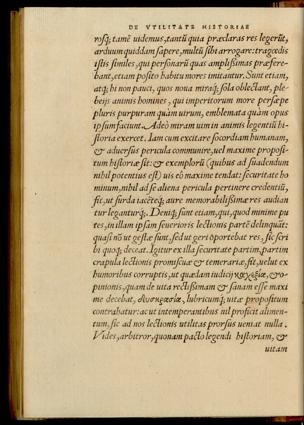 DE VTILITATE HISTORIAE
rosq́; tamē uidemus, tantū quia præclaras res legerūt,
arduum quiddam sapere, multū sibi arrogare: tragœdis
istis similes, qui personarū quas amplißimas præfere-
bant, etiam posito habitu mores imitantur. Sunt etiam,
atq́; bi non pauci, quos noua miraq́; sola oblectant, ple-
beijs animis homines, qui imperitorum more persæpe
pluris purpuram quàm uirum, emblemata quàm opus
ipsum faciunt. Adeò miram uim in animis legentiū hi-
storia exercet. Iam cum excitare socordiam humanam,
& aduersus pericula communire, uel maxime proposi-
tum historiæ sit: & exemplorū (quibus ad suadendum
nihil potentius est) uis eò maxime tendat: securitate ho
minum, nihil ad se aliena pericula pertinere credentiū,
fit, ut surda tacetéq; aure memorabilißimæ res audian
tur leganturq́;. Deniq́; sunt etiam, qui, quod minime pu
tes, in illam ipsam seuerioris lectionis partē delinquāt:
quasi nō ut gestæ sunt, sed ut geri oportebat res, sic scri
bi quoq; deceat. Igitur ex illa securitate partim, partim
crapula lectionis promiscuæ & temerariæ, fit, uelut ex
humoribus corruptis, ut quædam iudicij καχεξία, & o-
pinionis, quam de uita rectißimam & sanam esse maxi
me decebat, δυσκρασία, lubricumq́; uitæ propositum
contrahatur: ac ut intemperantibus nil proficit alimen-
tum, sic ad nos lectionis utilitas prorsus ueniat nulla.
Vides, arbitror, quonam pacto legendi historiam, &
uitam